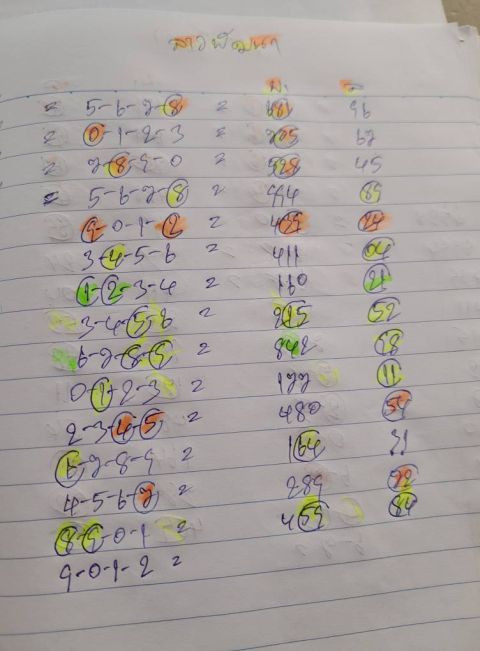 ลาวพัฒนา
บ. ล.
= 5-6-7-8 = 681 96
= 0-1-2-3 = 705 67
= 7-8-9-0 = 528 45
= 5-6-7-8 = 994 89
9-0-1-2 = 439 24
3-4-5-6 = 411 04
1-2-3-4 = 160 21
3-4-5-6 = 915 52
6-7-8-9 = 842 98
0-1-2-3 = 177 11
2-3-4-5 = 480 54
6-7-8-9 = 164 31
4-5-6-7 = 289 72
8-9-0-1 = 459 84
9-0-1-2 =